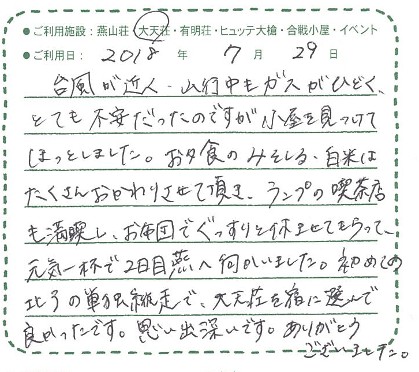 ●ご利用施設：燕山荘・大天荘・有明荘・ヒュッテ大槍・合戦小屋・イベント
●ご利用日： 2018 年 7 月 29 日
台風が近く、山行中もガスがひどく、
とても不安だったのですが小屋を見つけて
ほっとしました。お夕食のみそしる、白米は
たくさんおかわりさせて頂き、ランプの喫茶店
も満喫し、お布団でぐっすりと休ませてもらって、
元気一杯で2日目燕へ向かいました。初めての
北アの単独縦走で、大天荘を宿に選んで
良かったです。思い出深いです。ありがとう
ございました。